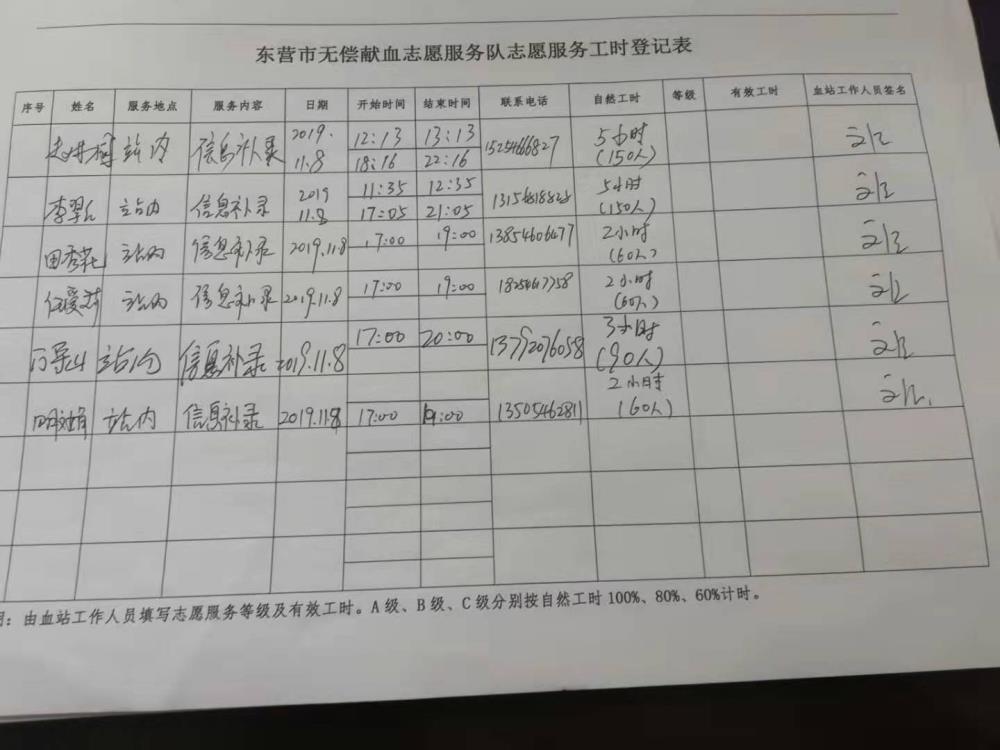 东营市无偿献血志愿服务队志愿服务工时登记表
序号 姓名 服务地点 服务内容 日期 开始时间 结束时间 联系电话 自然工时 等级 有效工时 血站工作人员签名
站内 信息补录 2019.11.8 12:13 13:13 15254666827 5小时(150人)
18:16 22:16
站内 信息补录 2019 11.8 11:35 12:35 5小时(150人)
17:05 21:05
田秀花 站内 信息补录 2019.11.8 17:00 19:00 13854606477 2小时(60人)
任爱芬 站内 信息补录 2019.11.8 17:00 19:00 18254617758 2小时(60人)
站内 信息补录 2019.11.8 17:00 20:00 13792076058 3小时(90人)
站内 信息补录 2019.11.8 17:00 19:00 13505462811 2小时(60人)
:由血站工作人员填写志愿服务等级及有效工时。A级、B级、C级分别按自然工时100%、80%、60%计时。